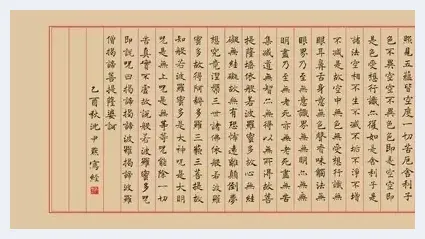 照見五蘊皆空度一切苦厄舍利子
色不異空空不異色色即是空空即
是色受想行識亦復如是舍利子是
諸法空相不生不滅不垢不淨不增
不減是故空中無色無受想行識無
眼耳鼻舌身意無色聲香味觸法無
眼界乃至無意識界無無明亦無無
明盡乃至無老死亦無老死盡無苦
集滅道無智亦無得以無所得故菩
提薩埵依般若波羅蜜多故心無絓
礙無絓礙故無有恐怖遠離顛倒夢
想究竟涅槃三世諸佛依般若波羅
蜜多故得阿耨多羅三藐三菩提故
知般若波羅蜜多是大神呪是大明
呪是無上呪是無等等呪能除一切
苦真實不虛故說般若波羅蜜多呪
即說呪曰揭諦揭諦波羅揭諦波羅
僧揭諦菩提薩婆訶
乙酉秋沈尹默寫經